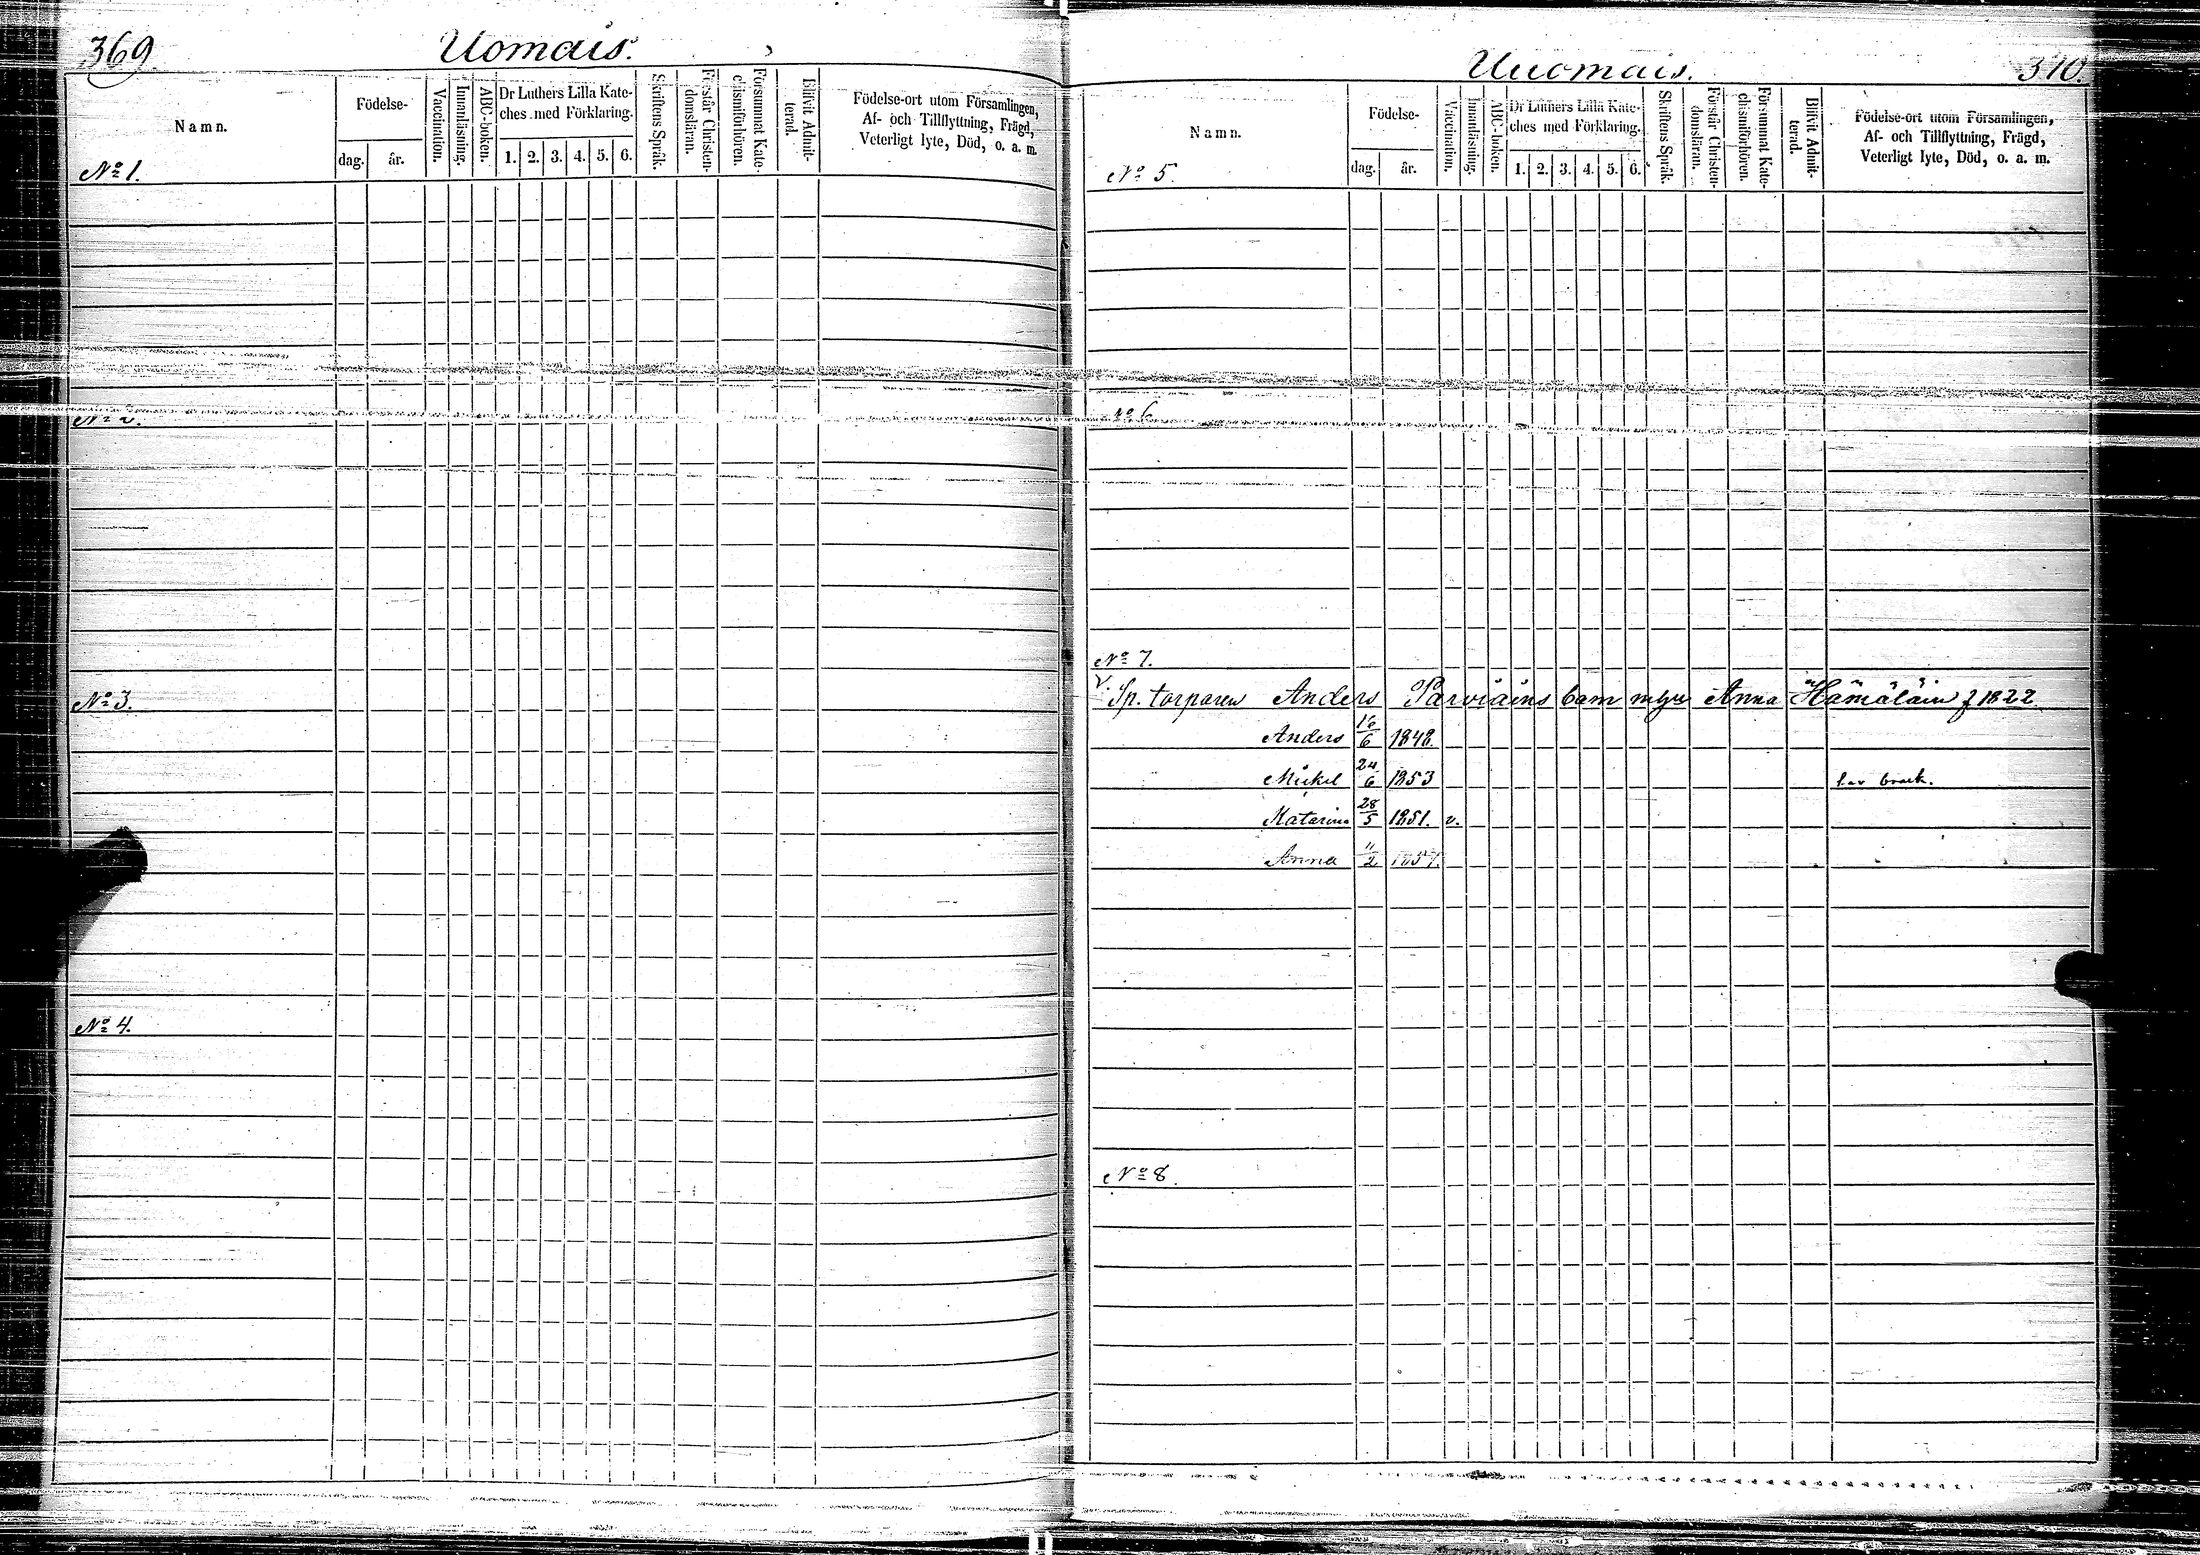 369.
Uomais.
Namn.
Födelse-
dag. år.
Vaccination.
Innanläsning.
ABC-boken.
Dr Luthers Lilla Kate-
ches med Förklaring.
1. 2. 3. 4. 5. 6.
Skriftens Språk.
Förstår Christen-
domsläran.
Försummat Kate-
chismiförhören.
Blifvit Admit-
terad.
Födelse-ort utom Församlingen,
Af- och Tillflyttning, Frägd,
Veterligt lyte, Död, o. a. m.
No 1.
No 2.
No 3.
No 4.
Uuomais.
370.
Namn.
Födelse-
dag. år.
Vaccination.
Innanläsning.
ABC-boken.
Dr Luthers Lilla Kate-
ches med Förklaring.
1. 2. 3. 4. 5. 6.
Skriftens Språk.
Förstår Christen-
domsläran.
Försummat Kate-
chismiförhören.
Blifvit Admit-
terad.
Födelse-ort utom Församlingen,
Af- och Tillflyttning, Frägd,
Veterligt lyte, Död, o. a. m.
No 5.
No 6
No 7.
v. Sp. torparen Anders Parviains barn Anna Hämäläin f 1822
Anders 16/6 1848.
Mickel 24/6 1853 brack.
Katarina 28/5 1851. v.
Anna 11/2 1857.
No 8.